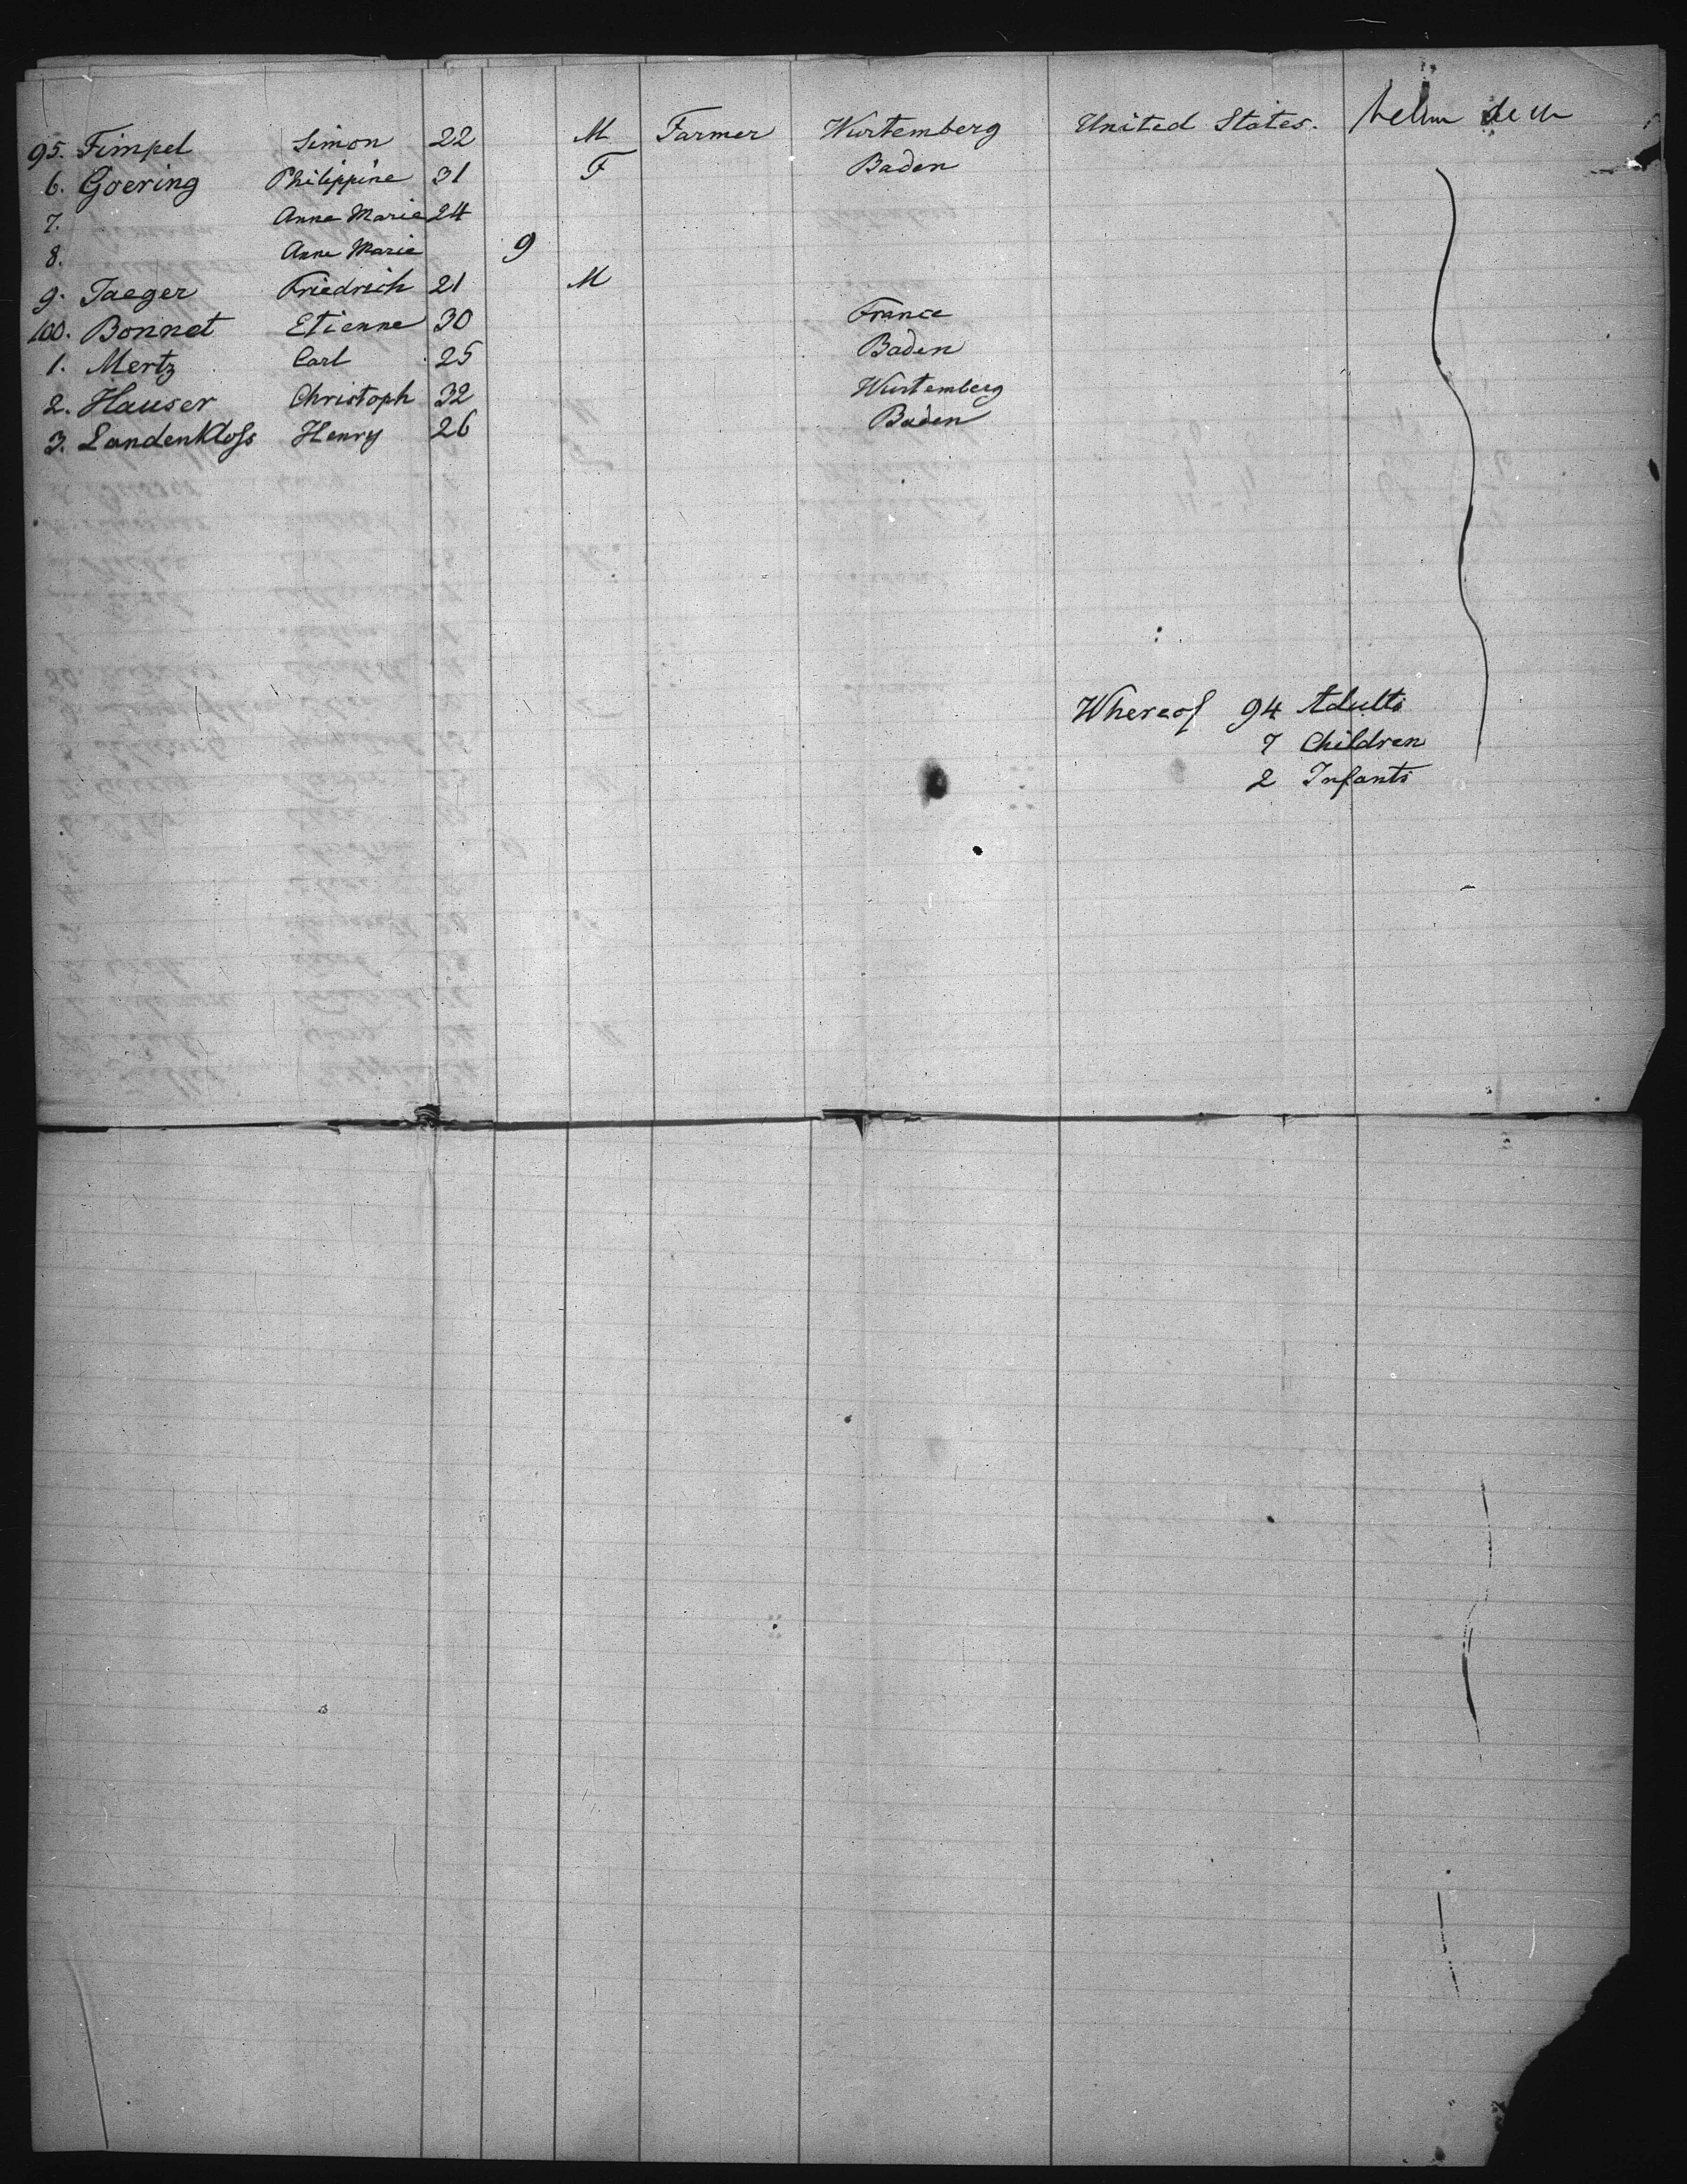 95. Fimpel Simon 22 M Farmer Wurtemberg United States.
6. Goering Philippine 31 F Baden
7. Anna Maria 24
8. Anna Maria 9
9. Jaeger Friedrich 21 M
100. Bonnet Etienne 30 France
1. Mertz Carl 25 Baden
2. Hauser Christoph 32 Wurtemberg
3. Landenkloss Henry 26 Baden
Whereof 94 Adults
7 Children
2 Infants